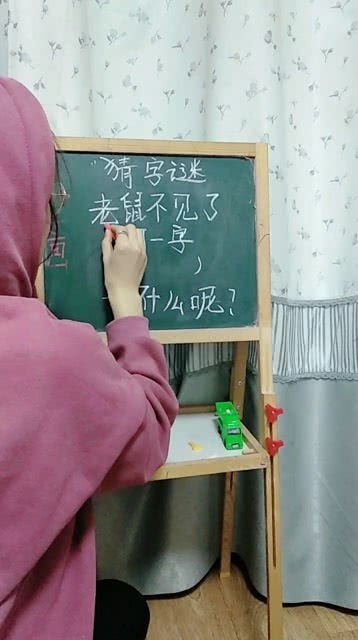 猜字谜
老鼠不见了
一字
什么呢？